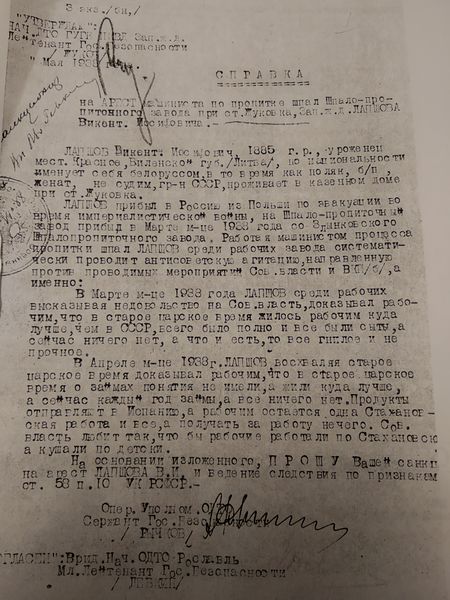 3 экз./бн,/
"УТВЕРЖДАЮ":
НАЧ. ДТО ГУГБ НКВД Зап.ж.д.
Лейтенант Гос.Безопасности
/ЖУКОВ/
" Мая 1938
СПРАВКА
на АРЕСТ машиниста по пропитке шпал Шпало-про-
питочного завода при ст.Жуковка,Зап.ж.д. ЛАПШОВА
Викент. Иосифовича.-
ЛАПШОВ Викент: Иосифович, 1885 г.р., уроженец
мест. Красное, Виленской губ./Литва/, по национальности
именует себя белоруссом, в то время как поляк, б/п,
женат, не судим, гр-н СССР, проживает в казенном доме
при ст.Жуковка.
ЛАПШОВ прибыл в Россию из Польши по эвакуации во
время империалистической войны, на Шпало-пропиточный
завод прибыл в Марте м-це 1938 года со
Шпалопропиточного завода. Работая машинистом процесса
пропитки шпал ЛАПШОВ среди рабочих завода системати-
чески проводит антисоветскую агитацию, направленную
против проводимых мероприятий Сов.власти и ВКП/б/, а
именно:
В Марте м-це 1938 года ЛАПШОВ среди рабочих
высказывая недовольство на Сов.власть, доказывал рабо-
чим, что в старое царское время жилось рабочим куда
лучше, чем в СССР, всего было полно и все были сыты, а
сейчас ничего нет, а что и есть, то все гнилое и не
прочное.
В Апреле м-це 1938г. ЛАПШОВ восхваляя старое
царское время доказывал рабочим, что в старое царское
время о займах понятия не имели, а жили куда лучше,
а сейчас каждый год займы, а все ничего нет. Продукты
отправляют в Испанию, а рабочим остается одна Стаханов-
ская работа и все, а получать за работу нечего. Сов.
власть любит так, что бы рабочие работали по Стахановски
а кушали по детски.
На основании изложенного, ПРОШУ Вашей санкц
на арест ЛАПШОВА В.И. и ведение следствия по признакам
ст. 58 п.10 УК РСФСР.-
Опер. Уполном.
Сержант Гос.Безопасности
/РЫЧКОВ/
ОГЛАСЕН": Врид.Нач.ОДТО-Рославль
Мл.Лейтенант Гос.Безопасности